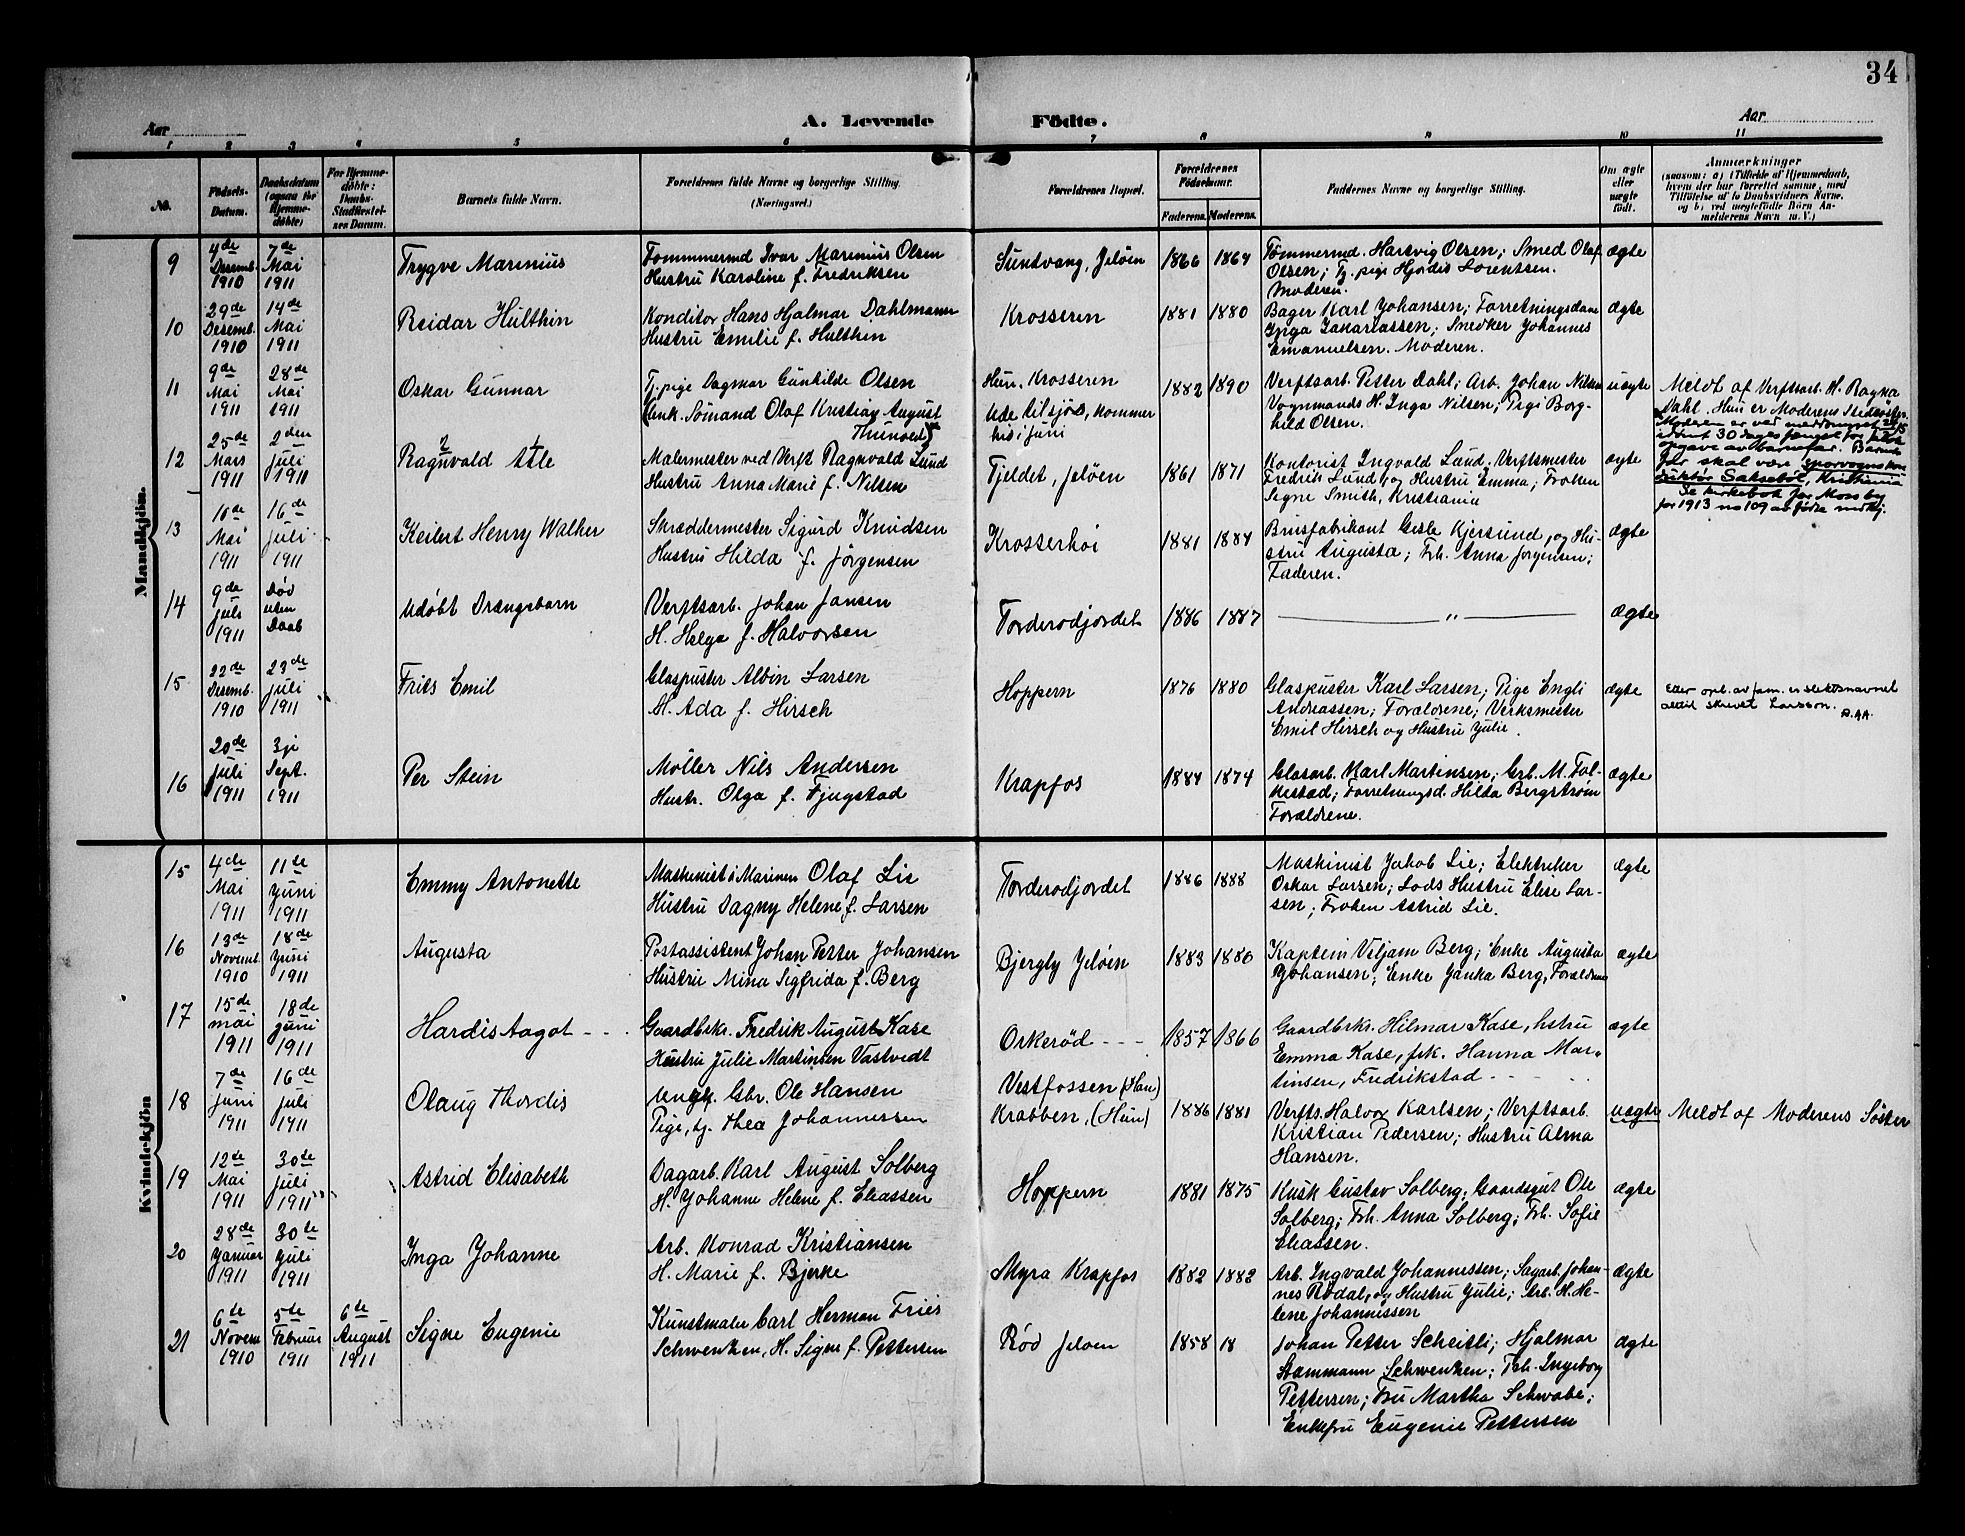 34
Aar
A. Levende
Födte.
Aar
1 2 3 4 5 6 7 8 9 10 11
No.
Födsels-Datum.
Daabsdatum (ogsaa for Hjemme-döbte)
For Hjemme-döbte: Daabs-Stadfæstelses Datum.
Barnets fulde Navn.
Forældrenes fulde Navne og borgerlige Stilling.
(Næringsvei.)
Forældrenes Bopæl.
Forældrenes Födselsaar.
Faderens. Moderens.
Faddernes Navne og borgerlige Stilling.
Om ægte eller uægte födt.
Anmærkninger
(saasom: a) i Tilfælde af Hjemmedaab,
hvem der har forrettet samme, med
Tilföielse af to Daabsvidners Navne,
og b) ved uægtefödte Börn An-
melderens Navn m. V.)
Mandkjön.
9
4de Desemb. 1910
7de Mai 1911
Trygve Marinius
Tømmermd Ivar Marinius Olsen
Hustru Karoline f. Fredriksen
Sundvang, Jeløen
1866 1864
Tømmermd. Hartvig Olsen; Smed Olaf
Olsen; Tj. pige Hjørdis Lorentsen.
Moderen.
ægte
10
29de Desemb. 1910
14de Mai 1911
Reidar Hulthin
Konditor Hans Hjalmar Dahlmann
Hustru Emilie f. Hulthin
Krosseren
1881 1880
Bager Karl Johansen; Forretningsdame
Inga Zakariassen; Snedker Johannes
Emanuelsen. Moderen.
ægte
11
9de Mai 1911
28de Mai 1911
Oskar Gunnar
Tj. pige Dagmar Gunhilde Olsen
Enk. Sømand Olaf Kristian August
Thunvold
Hun. Krosseren
Ude tilsjøs, kommer
his i juni
1882 1890
Verftsarb. Petter Dahl; Arb. Johan Nilsen
Vognmands H. Inga Nilsen; Pige Borg-
hild Olsen.
uægte
Meldt af Verftsarb. H. Ragna
Dahl. Hun er Moderens Stedsøster.
Moderen er ved meddomsret
idømt 30 dages fængsel for falsk
opgave av barnefar. Barnets
far skal være sporvognskon
duktør Saksebøl, Kristiania
Se kirkebok for Moss by
for 1913 no 109 av fødte mdkj.
12
25de Mars 1911
2den Juli 1911
Ragnvald Atle
Malermester ved Verft Ragnvald Lund
Hustru Anna Marie f. Nilsen
Fjeldet, Jeløen
1861 1871
Kontorist Ingvald Lund; Verftsmester
Fredrik Lund, og Hustru Emma; Frøken
Signe Smith, Kristiania
ægte
13
10de Mai 1911
16de Juli 1911
Keilert Henry Walker
Skræddermester Sigurd Knudsen
Hustru Hilda f. Jørgensen
Krosserhøi
1881 1884
Brusfabrikant Gisle Kjersund, og Hu-
stru Augusta; Frk. Anna Jørgensen;
Faderen.
ægte
14
9de Juli 1911
Død uten Daab
Udøbt Drængebarn
Verftsarb. Johan Jansen
H. Helga f. Halvorsen
Torderødjordet
1886 1887
— „ —
ægte
15
22de Desemb. 1910
23de Juli 1911
Frits Emil
Glaspuster Albin Larsen
H. Ada f. Hirsch
Hoppern
1876 1880
Glaspuster Karl Larsen; Pige Engli
Andreassen; Forældrene; Verksmester
Emil Hirsch og Hustru Julie.
ægte
Etter opl. av fam. er slektsnavnet
alltid skrevet Larsson.
16
20de Juli 1911
3je Sept. 1911
Per Stein
Møller Nils Andersen
Hustr. Olga f. Fjugstad
Krapfos
1884 1874
Glasarb. Karl Martinsen; Grb. M. Fol-
kestad; Forretningsd. Hilda Bergstrøm
Forældrene.
ægte
Kvindekjön
15
4de Mai 1911
11te Juni 1911
Emmy Antonette
Maskinist i Marinen Olaf Lie
Hustru Dagny Helene f. Larsen
Torderødjordet
1886 1888
Maskinist Jakob Lie; Elektriker
Oskar Larsen; Lods Hustru Elise Lar-
sen; Frøken Astrid Lie.
ægte
16
13de Novemb. 1910
18de Juni 1911
Augusta
Postassistent Johan Petter Johansen
Hustru Mina Sigfrida f. Berg
Bjergly Jeløen
1883 1880
Kaptein Viljam Berg; Enke Augusta
Johansen; Enke Janka Berg, Forældrene
ægte
17
15de mai 1911
18de juni 1911
Hardis Aagot
Gaardbrkr. Fredrik August Kase
Hustru Julie Martinsen Vastvedt
Orkerød
1857 1866
Gaardbrkr. Hilmar Kase, hstru
Emma Kase, frk. Hanna Mar-
tinsen, Fredrikstad
ægte
18
7de Juni 1911
16de Juli 1911
Olaug Thordis
Ungk. Gbr. Ole Hansen
Pige, tj. Thea Johannessen
Vestfossen (Han)
Krabben, (Hun)
1886 1881
Verfts. Halvor Karlsen; Verftsarb.
Kristian Pedersen; Hustru Alma
Hansen.
uægte
Meldt af Moderens Søster
19
12te Mai 1911
30te Juli 1911
Astrid Elisabeth
Dagarb. Karl August Solberg
H. Johanne Helene f. Eliassen
Hoppern
1881 1875
Kusk Gustav Solberg; Gaardsgut Ole
Solberg; Frk. Anna Solberg; Frk. Sofie
Eliassen.
ægte
20
28de Januar 1911
30te Juli 1911
Inga Johanne
Arb. Konrad Kristiansen
H. Marie f. Bjerke
Myra Krapfos
1882 1882
Arb. Ingvald Johannessen; Sagarb. Johan-
nes Rødal, og Hustru Julie; Arb. H. He-
lene Johannissen
ægte
21
6te Novem 1910
5te Februar 1911
6te August 1911
Signe Eugenie
Kunstmaler Carl Herman Fries
Schwenken, H. Signe f. Pettersen
Rød Jeløen
1858 18
Johan Petter Scheitli; Hjalmar
Stammann Schwenken; Frk. Ingeborg
Pettersen; Fru Martha Schwabe;
Enkefru Eugenie Pettersen
ægte